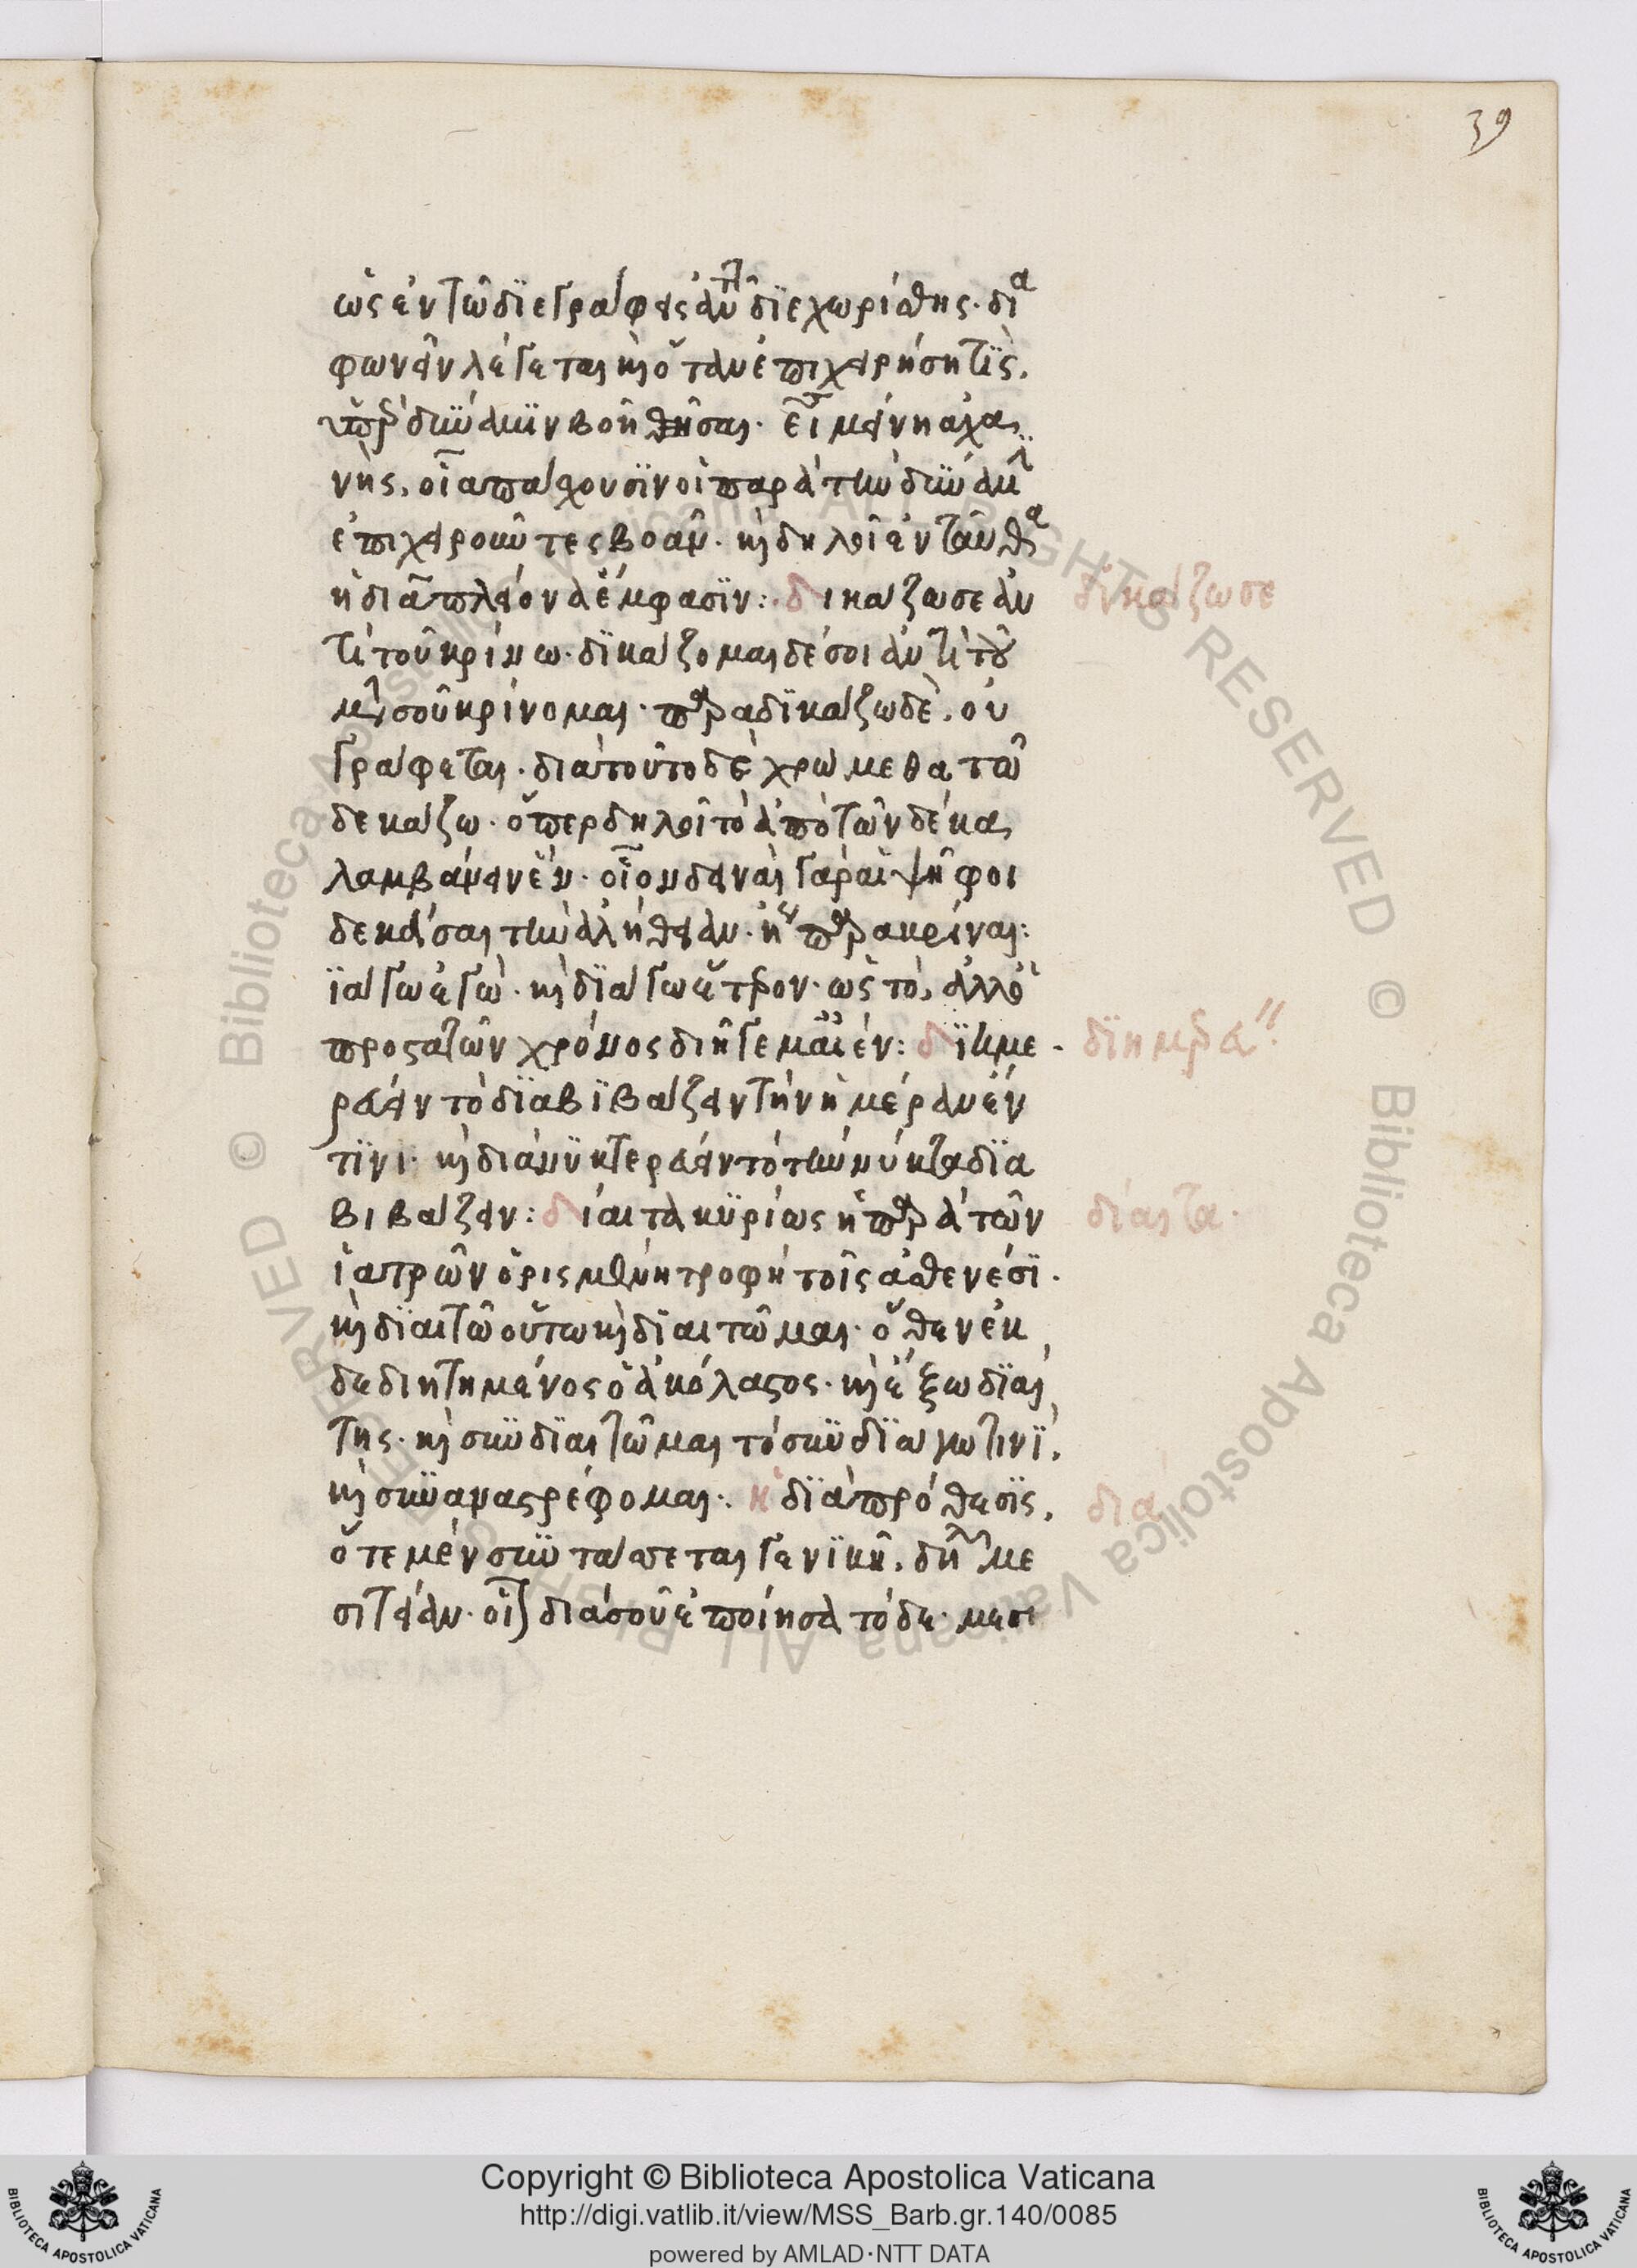 39
ὡς ἐν τῶ διεγράφης ἀντὶ διεχωρίσθης. δια
φωνεῖν λέγεται καὶ ὅταν ἐπιχειρήση τὶς,
ὑπὲρ δύναμιν βοηθῆσαι. εἶτα μένη ἀχα
νής. οἷα πάσχουσιν οἱ παρὰ τὴν δύναμιν
ἐπιχειροῦντες βοᾶν. καὶ δηλοῖ ἐνταῦθα
ἡ διὰ πλείονα ἔμφασιν: δικάζω σε ἀν
τὶ τοῦ κρίνω. δικάζομαι δέ σοι ἀντὶ τοῦ
μετὰ σοῦ κρίνομαι. παραδικάζω δὲ, οὐ
γράφεται. διατοῦτο δὲ χρώμεθα τῶ
δεκάζω. ὅπερ δηλοῖ τὸ ἀπὸ τῶν δέκα
λαμβάνειν ἕν. οἷον δειναὶ γὰρ αἱ ψῆφοι
δεκάσαι τὴν ἀλήθειαν. ἤγουν παρακρίναι:
ιάγω ἐγὼ. καὶ διάγω ἕτερον. ὡς τὸ, ἀλλ' ὁ
πρὸς αὐτῶν χρόνος διῆγέ με
διημε
ρεύειν τὸ διαβιβάζειν τὴν ἡμέραν ἔν
τινι. καὶ διανυκτερεύειν τὸ τὴν νύκτα δια
βιβάζειν: δίαιτα κυρίως ἡ παρὰ τῶν
ἰατρῶν ὁρισμένη τροφὴ τοῖς ἀσθενέσι.
καὶ διαιτῶ οὕτω καὶ διαιτῶμαι. ὅθεν ἐκ
δεδιητημένος ὁ ἀκόλαστος. καὶ ἐξωδίαι
της. καὶ συνδιαιτῶμαι τὸ συνδιάγω τινὶ,
καὶ συναναστρέφομαι: ἡ διὰ πρόθεσις,
ὅτε μὲν συντάσσεται γενικῆ, δηλοῖ με
σιτείαν. οἷον διὰ σοῦ ἐποίησα τόδε. μεσι
δικάζω σε
διημερεύ
δίαιτα.
διὰ
Copyright © Biblioteca Apostolica Vaticana
http://digi.vatlib.it/view/MSS_Barb.gr.140/0085
powered by AMLAD·NTT DATA
BIBLIOTECA APOSTOLICA VATICANA
BIBLIOTECA APOSTOLICA VATICANA